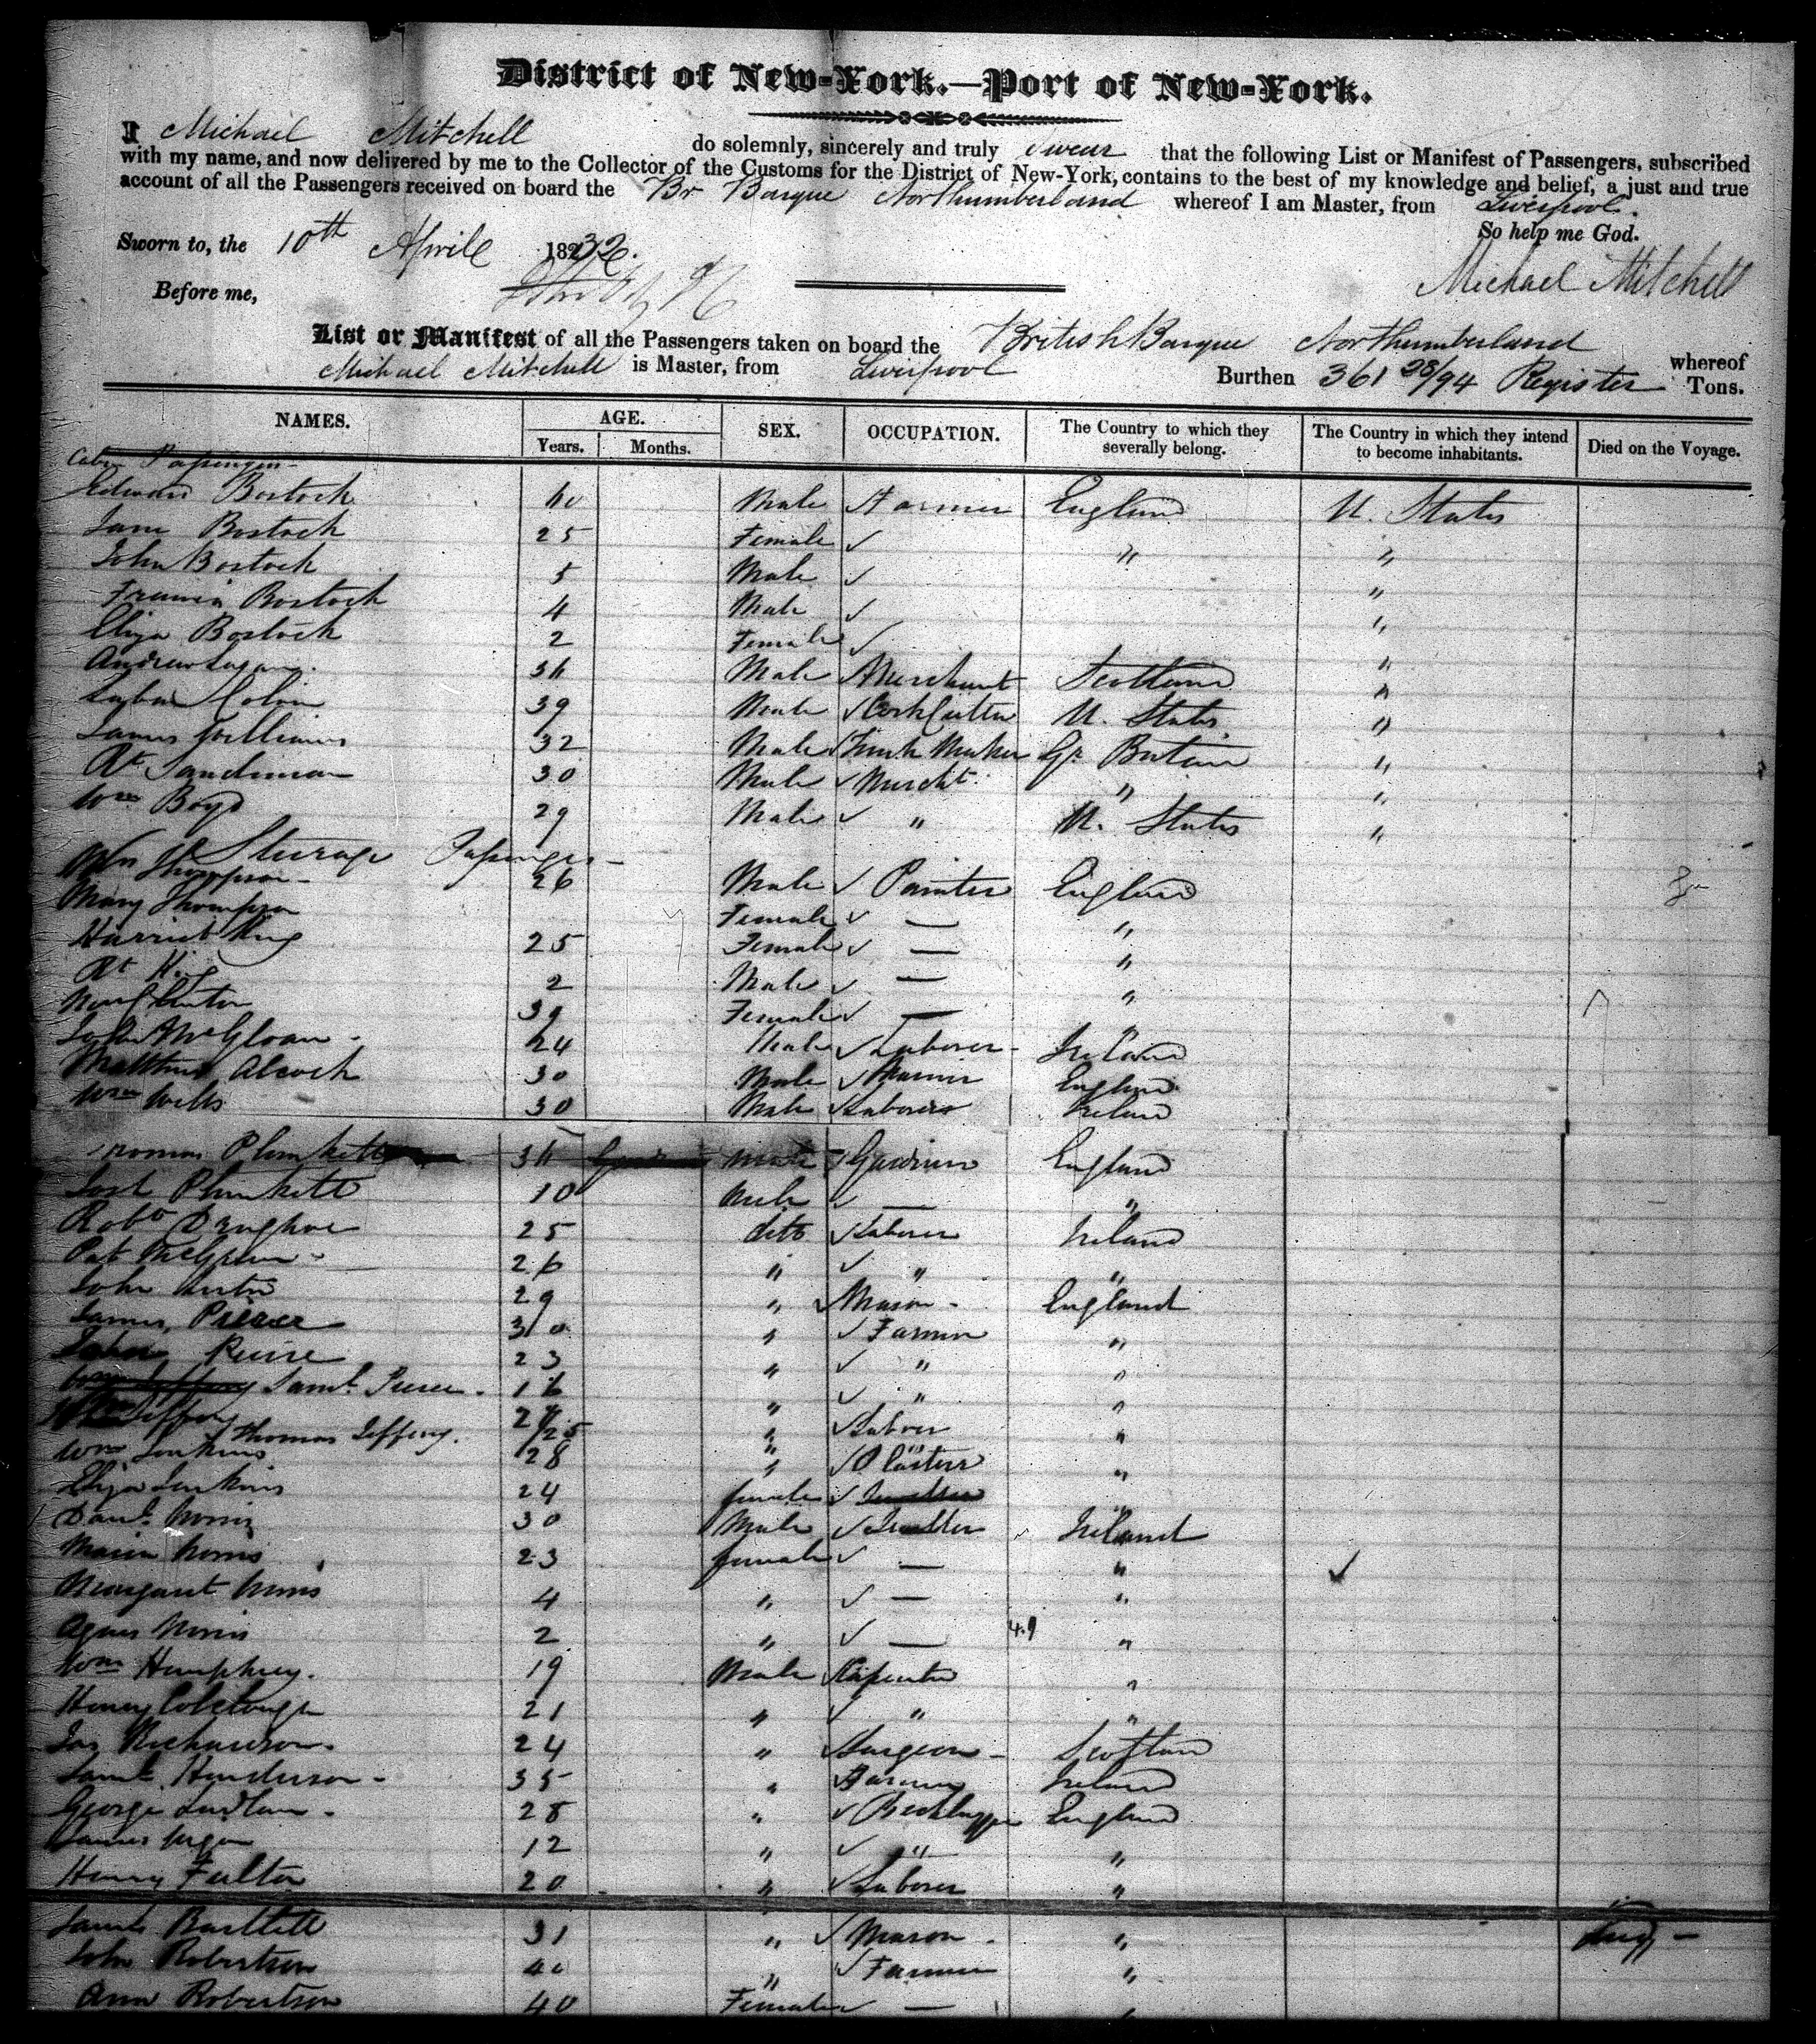 District of New-York.—Port of New-York.
I Michael Mitchell do solemnly, sincerely and truly Swear that the following List or Manifest of Passengers, subscribed
with my name, and now delivered by me to the Collector of the Customs for the District of New-York, contains to the best of my knowledge and belief, a just and true
account of all the Passengers received on board the Br Barque Northumberland whereof I am Master, from Liverpool.
So help me God.
Sworn to, the 10th Aprile 1832.
Michael Mitchell
Before me,
List or Manifest of all the Passengers taken on board the British Barque Northumberland whereof
Michael Mitchell is Master, from Liverpool Burthen 361 28/94 Register Tons.
NAMES. AGE. SEX. OCCUPATION. The Country to which they severally belong. The Country in which they intend to become inhabitants. Died on the Voyage.
Years. Months.
Cabin Passengers
Edward Bostock 40 Male Farmer England U. States
Jane Bostock 25 Female ✓ " "
John Bostock 5 Male ✓ "
Francis Bostock 4 Male ✓ "
Eliza Bostock 2 Female ✓ "
Andrew Logan 34 Male Merchant Scotland "
39 Male ✓ Cork Cutter U. States "
James Williams 32 Male ✓ Trunk Maker Gt. Britain "
Rt Sandiman 30 Male ✓ Mercht. " "
Wm Boyd 29 Male ✓ " U. States "
Steerage Passengers
Wm Thompson 26 Male ✓ Painter England
Mary Thompson Female ✓ — "
Harriet King 25 Female ✓ — "
Rt King 2 Male ✓ — "
39 Female ✓ —
John McGloan 24 Male ✓ Laborer Ireland
Matthew Alcock 30 Male ✓ England
Wm Wells 30 Male ✓ Laborer Ireland
Thomas Plunkett 34 Male ✓ Gardner England
Plunkett 10 Male ✓ — "
Robt Donghoe 25 ditto ✓ Laborer Ireland
Pat 26 " ✓ " "
John 29 " ✓ Mason England
James Pierce 30 " ✓ Farmer "
John Peirse 23 " ✓ " "
Saml. Pierce 16 " ✓ " "
Wm Jeffery " ✓ Labourer "
Thomas Jeffery. 25 " "
Wm Jenkins 28 " ✓ Plasterer "
Eliza Jenkins 24 female ✓ "
Danl. Norris 30 Male ✓ Ireland
Maria Norris 23 female ✓ — " ✓
Margaret Norris 4 " ✓ — "
Agnes Norris 2 " ✓ — 49 "
Wm Humphrey. 19 Male ✓ Carpenter "
Henry Colclough 21 " ✓ " "
Jas Richardson 24 " ✓ Surgeon Scotland
Saml. Henderson 35 " ✓ Farmer Ireland
George Ludlam 28 " ✓ England
James 12 " ✓ " "
Henry Fulton 20 " ✓ Laborer "
Saml Bartlett 31 " ✓ Mason "
John Robertson 40 " ✓ Farmer "
Ann Robertson 40 Female ✓ — "